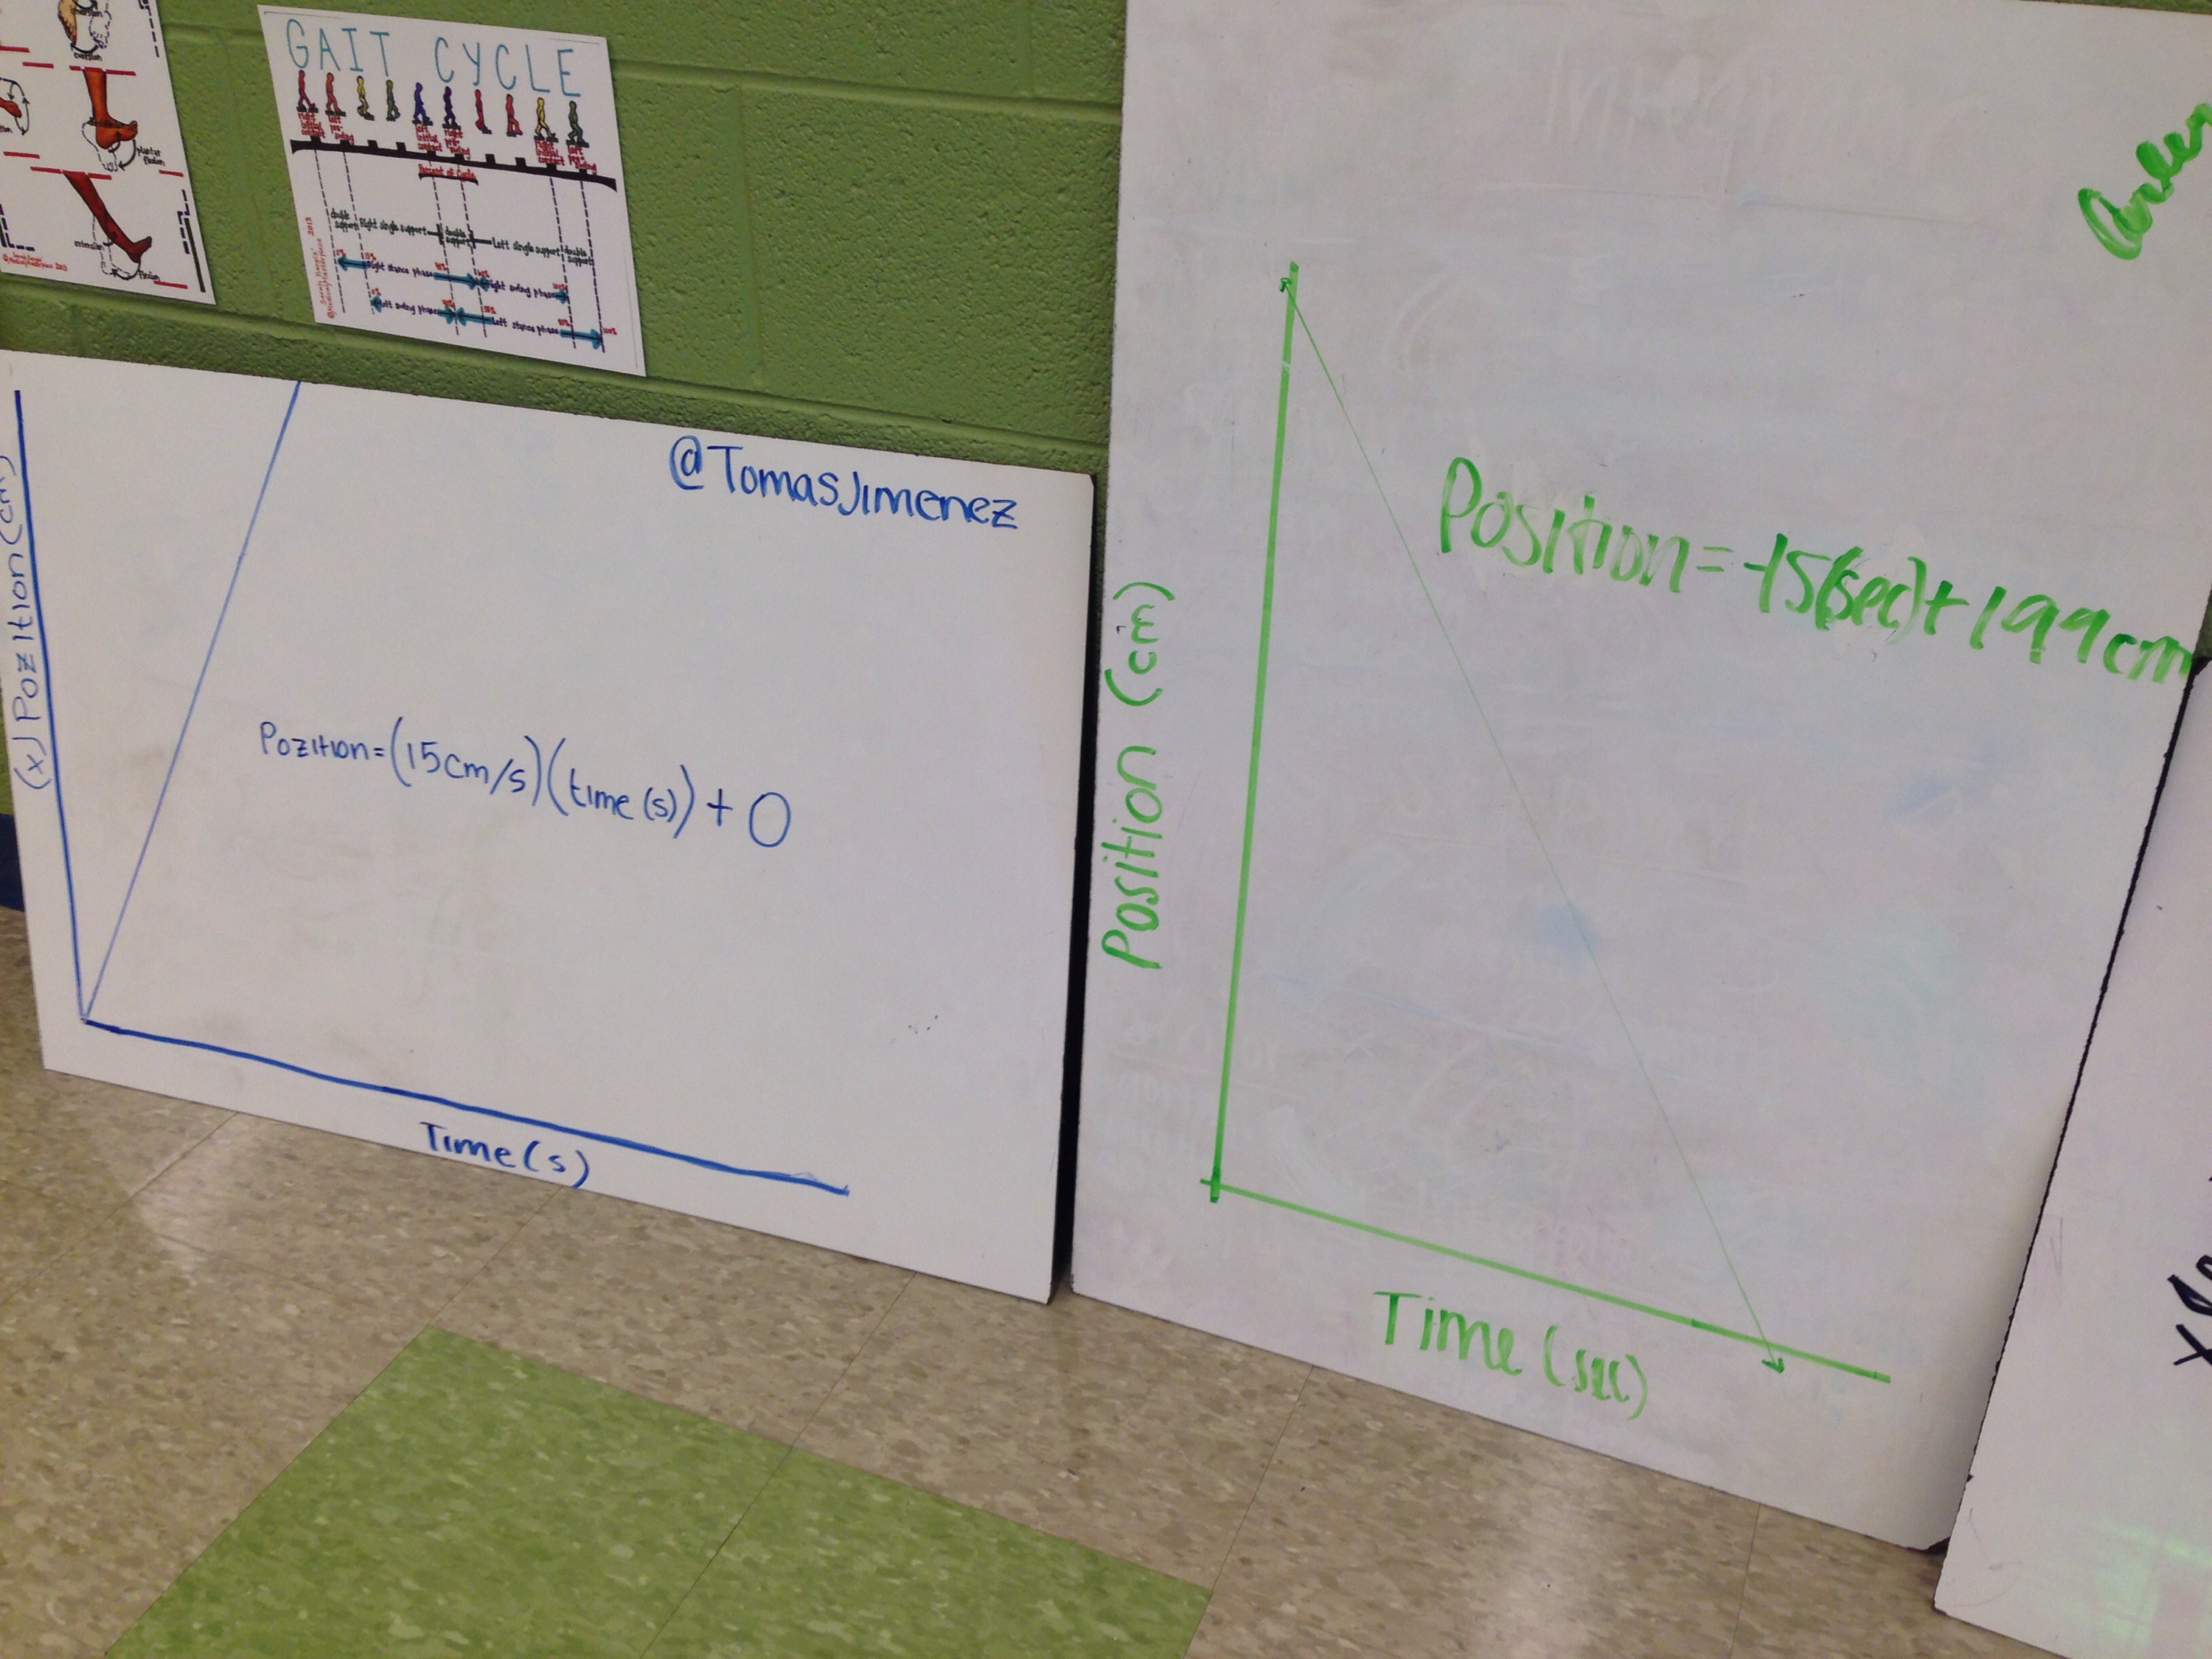 GAIT CYCLE
Percent of Cycle
double support
Right single support
double support
Left single support
double support
Right stance phase
Right swing phase
Left swing phase
Left stance phase
100%
2013
plantar flexion
extension
flexion
@TomasJimenez
(x) Pozition (cm)
Pozition=(15cm/s)(time(s))+0
Time(s)
Position (cm)
Position=-15(sec)+199cm
Time (sec)